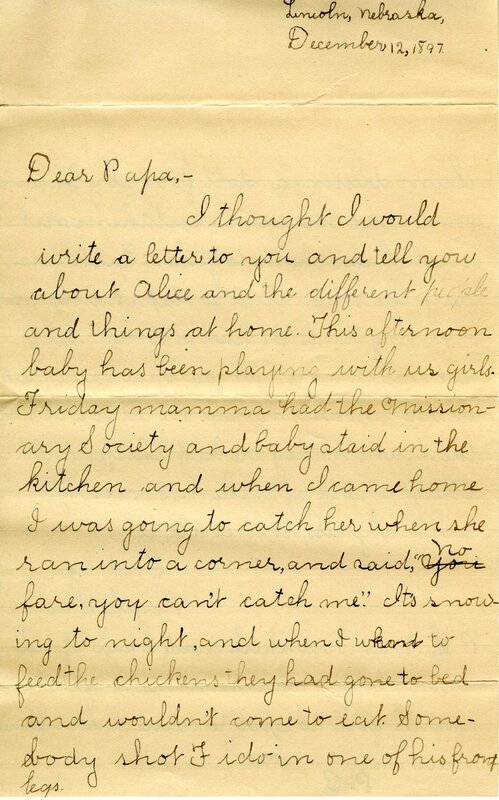 Lincoln, Nebraska,
December 12, 1897.
Dear Papa,-
I thought I would
write a letter to you and tell you
about Alice and the different people
and things at home. This afternoon
baby has been playing with us girls.
Friday mamma had the Mission-
ary Society and baby staid in the
kitchen and when I came home
I was going to catch her when she
ran into a corner, and said, "~~You~~ no
fare, you can't catch me." Its snow-
ing to night, and when I went to
feed the chickens they had gone to bed
and wouldn't come to eat. Some-
body shot Fido in one of his front
legs.